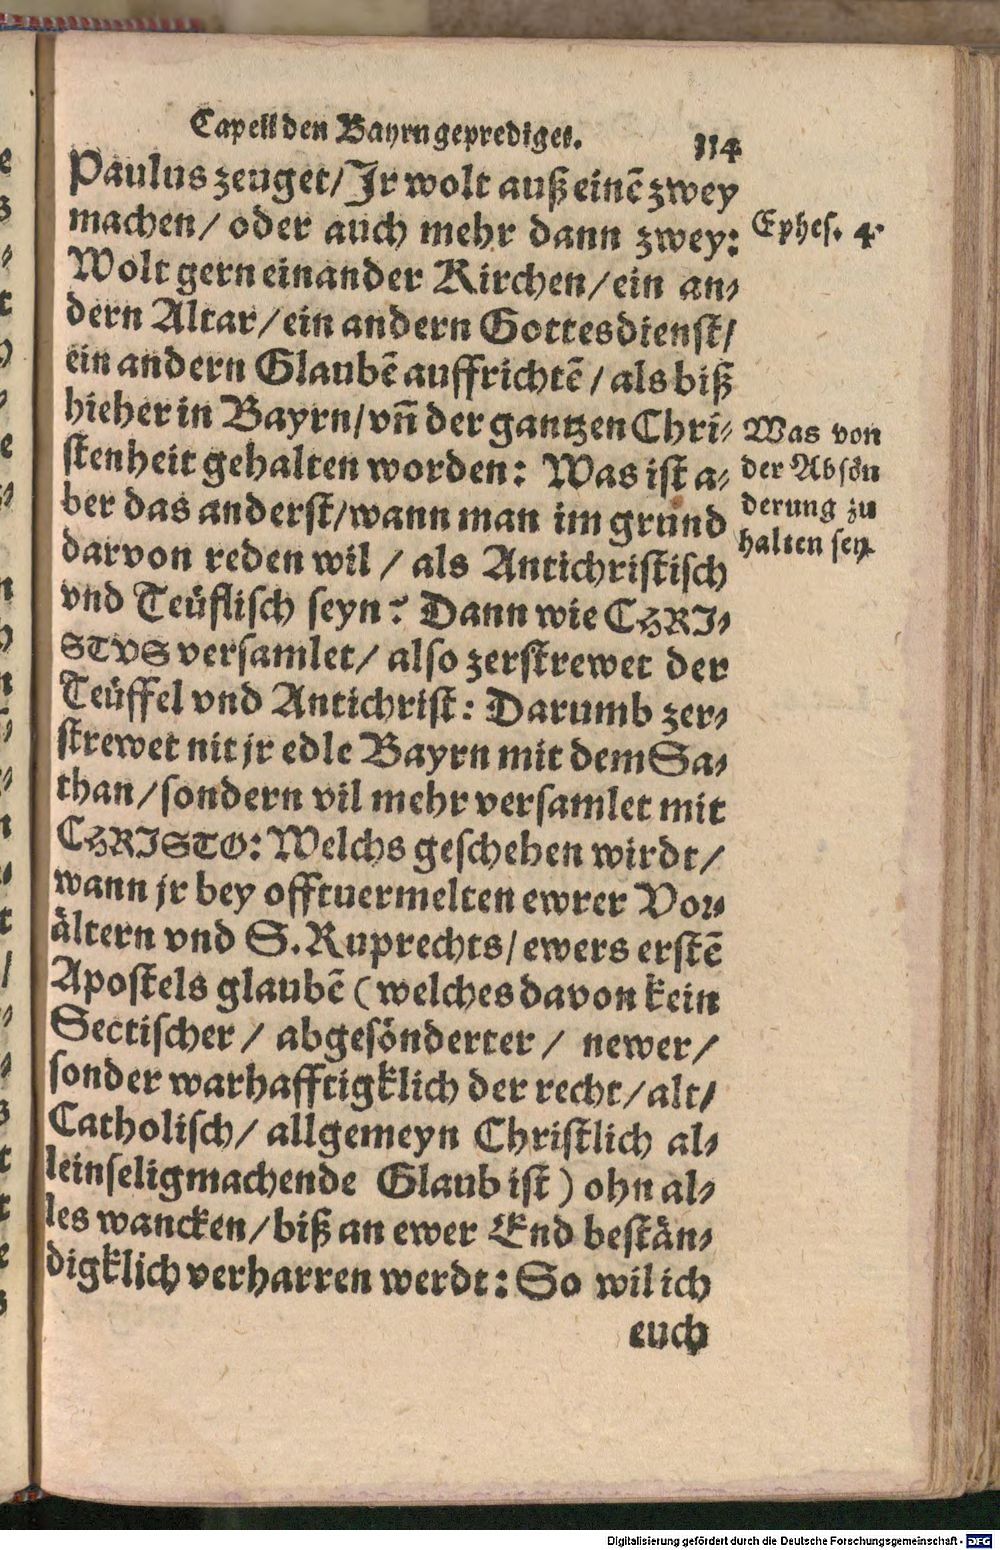 Capell den Bayrn geprediget. 114
Paulus zeuget/ Jr wolt auß einē zwey
machen/ oder auch mehr dann zwey:
Ephes. 4.
Wolt gern ein ander Kirchen/ ein an⸗
dern Altar/ ein andern Gottesdienst/
ein andern Glaubē auffrichtē/ als biß
hieher in Bayrn/ vñ der gantzen Chri⸗
stenheit gehalten worden: Was ist a⸗
ber das anderst/ wann man im grund
darvon reden wil/ als Antichristisch
Was von
der Absön
derung zu
halten sey.
vnd Teüflisch seyn? Dann wie CHRI⸗
STVS versamlet/ also zerstrewet der
Teüffel vnd Antichrist: Darumb zer⸗
strewet nit jr edle Bayrn mit dem Sa⸗
than/ sondern vil mehr versamlet mit
CHRISTO: Welchs geschehen wirdt/
wann jr bey offtuermelten ewrer Vor⸗
ältern vnd S. Ruprechts/ ewers erstē
Apostels glaubē (welches davon kein
Sectischer/ abgesönderter/ newer/
sonder warhafftigklich der recht/ alt/
Catholisch/ allgemeyn Christlich al⸗
leinseligmachende Glaub ist) ohn al⸗
les wancken/ biß an ewer End bestän⸗
digklich verharren werdt: So wil ich
euch
Digitalisierung gefördert durch die Deutsche Forschungsgemeinschaft - DFG